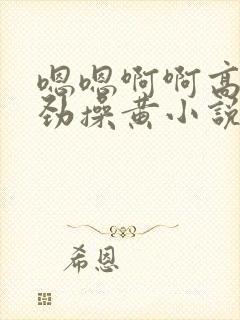 嗯嗯啊啊高
劲操黄小說
希恩